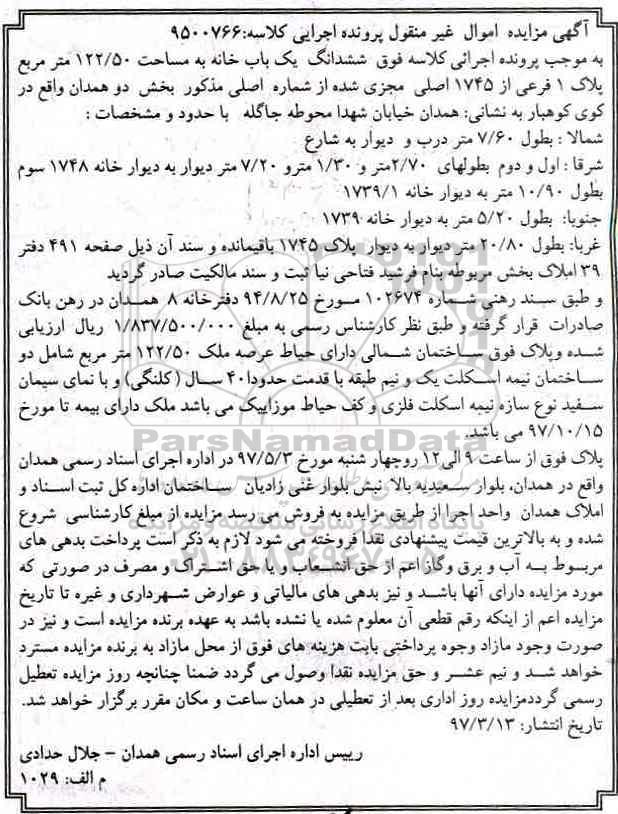 آگهی مزایده اموال غیر منقول پرونده اجرایی کلاسه:۹۵۰۰۷۶۶
به موجب پرونده اجرائی کلاسه فوق ششدانگ یک باب خانه به مساحت ۱۲۲/۵۰ متر مربع
پلاک ۱ فرعی از ۱۷۴۵ اصلی مجزی شده از شماره اصلی مذکور بخش دو همدان واقع در
کوی کوهبار به نشانی: همدان خیابان شهدا محوطه جاگله با حدود و مشخصات :
شمالا : بطول ۷/۶۰ متر درب و دیوار به شارع
شرقا : اول و دوم بطولهای ۲/۷۰متر و ۱/۳۰ مترو ۷/۲۰ متر دیوار به دیوار خانه ۱۷۴۸ سوم
بطول ۱۰/۹۰ متر به دیوار خانه ۱۷۳۹/۱
جنوبا: بطول ۵/۲۰ متر به دیوار خانه ۱۷۳۹
غربا: بطول ۲۰/۸۰ متر دیوار به دیوار پلاک ۱۷۴۵ باقیمانده و سند آن ذیل صفحه ۴۹۱ دفتر
۳۹ املاک بخش مربوطه بنام فرشید فتاحی نیا ثبت و سند مالکیت صادر گردید
و طبق سند رهنی شماره ۱۰۲۶۷۴ مورخ ۹۴/۸/۲۵ دفترخانه ۸ همدان در رهن بانک
صادرات قرار گرفته و طبق نظر کارشناس رسمی به مبلغ ۱/۸۳۷/۵۰۰/۰۰۰ ریال ارزیابی
شده وپلاک فوق ساختمان شمالی دارای حیاط عرصه ملک ۱۲۲/۵۰ متر مربع شامل دو
ساختمان نیمه اسکلت یک و نیم طبقه با قدمت حدودا۴۰ سال (کلنگی) و با نمای سیمان
سفید نوع سازه نیمه اسکلت فلزی و کف حیاط موزاییک می باشد ملک دارای بیمه تا مورخ
۹۷/۱۰/۱۵ می باشد.
ParsNamadData
پلاک فوق از ساعت ۹ الی۱۲ روچهار شنبه مورخ ۹۷/۵/۳ در اداره اجرای اسناد رسمی همدان
واقع در همدان، بلوار سعیدیه بالا نبش بلوار غنی زادیان ساختمان اداره کل ثبت اسناد و
املاک همدان واحد اجرا از طریق مزایده به فروش می رسد مزایده از مبلغ کارشناسی شروع
شده و به بالاترین قیمت پیشنهادی نقدا فروخته می شود لازم به ذکر است پرداخت بدهی های
مربوط به آب و برق وگاز اعم از حق انشعاب و یا حق اشتراک و مصرف در صورتی که
مورد مزایده دارای آنها باشد و نیز بدهی های مالیاتی و عوارض شهرداری و غیره تا تاریخ
مزایده اعم از اینکه رقم قطعی آن معلوم شده یا نشده باشد به عهده برنده مزایده است و نیز در
صورت وجود مازاد وجوه پرداختی بابت هزینه های فوق از محل مازاد به برنده مزایده مسترد
خواهد شد و نیم عشر و حق مزایده نقدا وصول می گردد ضمنا چنانچه روز مزایده تعطیل
رسمی گرددمزایده روز اداری بعد از تعطیلی در همان ساعت و مکان مقرر برگزار خواهد شد.
تاریخ انتشار: ۹۷/۳/۱۳
رییس اداره اجرای اسناد رسمی همدان - جلال حدادی
م الف: ۱۰۲۹